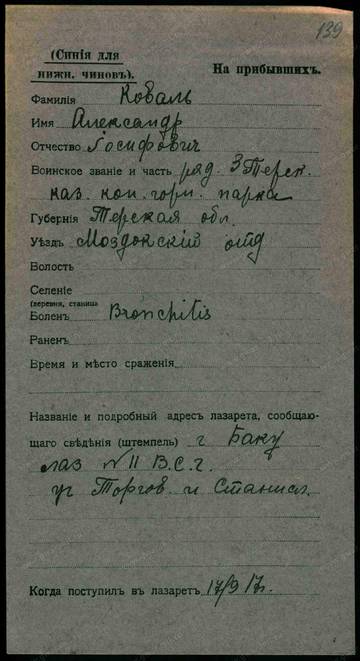 139
(Синія для
нижн. чиновъ).
На прибывшихъ.
Фамилія Коваль
Имя Александр
Отчество Иосифович
Воинское званіе и часть ряд. 3 Терск.
каз. кон. горн. парка
Губернія Терская обл.
Уѣздъ Моздокскій отд
Волость
Селеніе
(деревня, станица)
Боленъ Bronchitis
Раненъ
Время и мѣсто сраженія
Названіе и подробный адресъ лазарета, сообщаю-
щаго свѣдѣнія (штемпель) г Баку
лаз № 11 В.С.г.
уг Торгов и Станисл.
Когда поступилъ въ лазаретъ 17/9 17г.